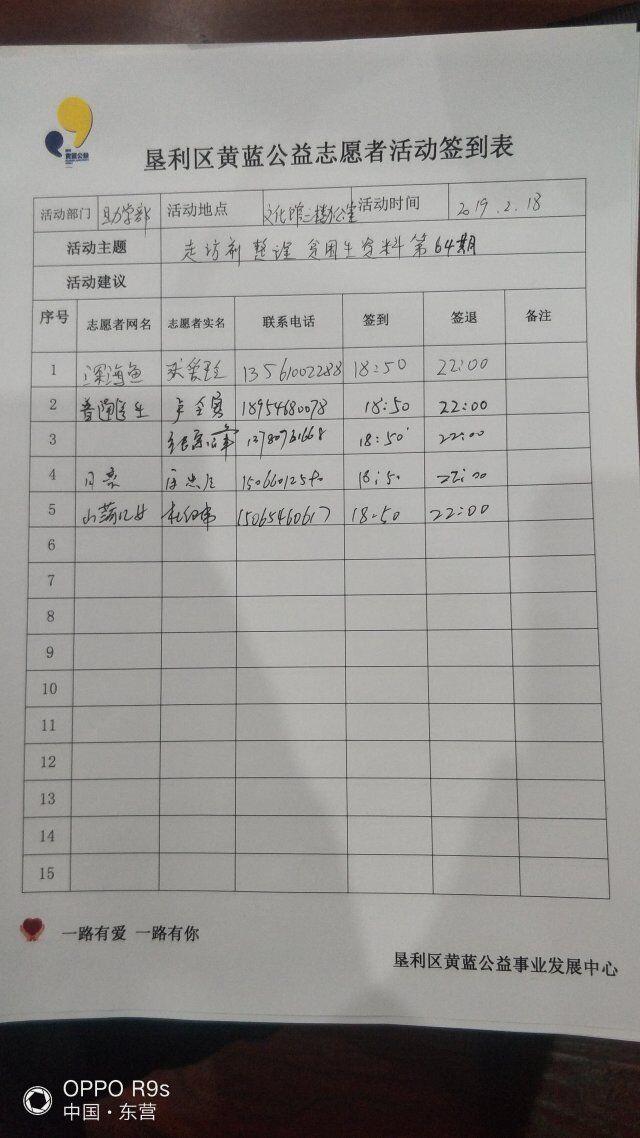 黄蓝公益
垦利区黄蓝公益志愿者活动签到表
活动部门 助学部 活动地点 文化馆二楼办公室 活动时间 2019.2.18
活动主题 走访和整理贫困生资料第64期
活动建议
序号 志愿者网名 志愿者实名 联系电话 签到 签退 备注
1 深海鱼 13561002288 18:50 22:00
2 普通医生 卢全勇 18954680078 18:50 22:00
3 13780761668 18:50 22:00
4 18:50 22:00
5 山荫儿女 15065460617 18:50 22:00
6
7
8
9
10
11
12
13
14
15
一路有爱 一路有你
垦利区黄蓝公益事业发展中心
OPPO R9s
中国·东营